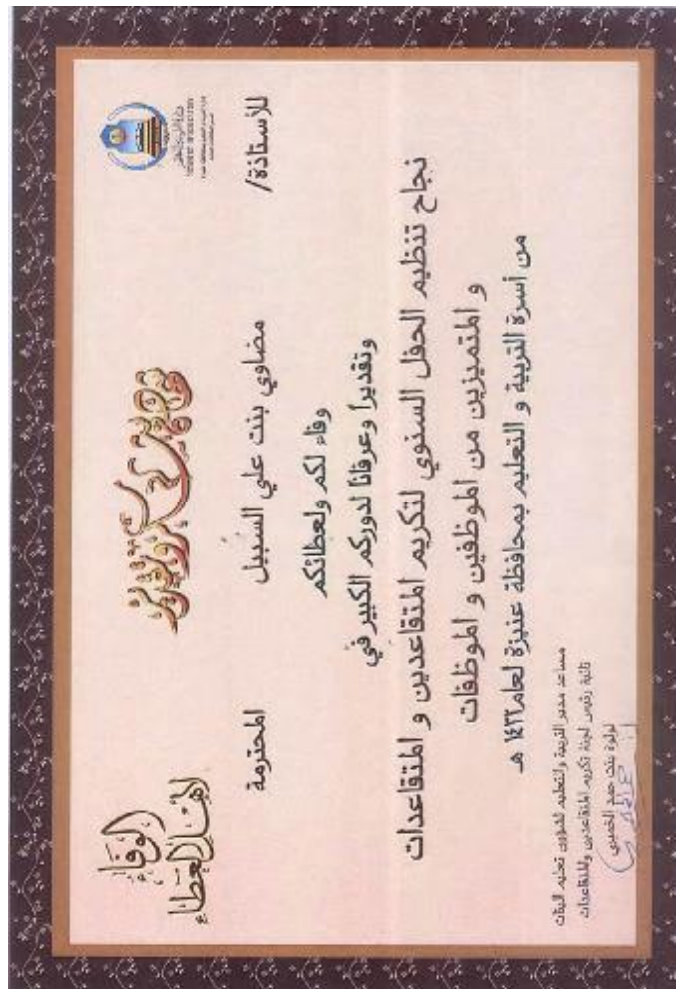 وزارة التربية والتعليم
الوفاء
لأهل العطاء
للأستاذة/ مضاوي بنت علي السبيل المحترمة
وفاء لكم ولعطائكم
وتقديرا وعرفانا لدوركم الكبير في
نجاح تنظيم الحفل السنوي لتكريم المتقاعدين و المتقاعدات
و المتميزين من الموظفين و الموظفات
من أسرة التربية و التعليم بمحافظة عنيزة لعام هـ
مساعد مدير التربية والتعليم لشؤون تعليم البنات
رئيس لجنة تكريم المتقاعدين والمتقاعدات
لولوة بنت حمد